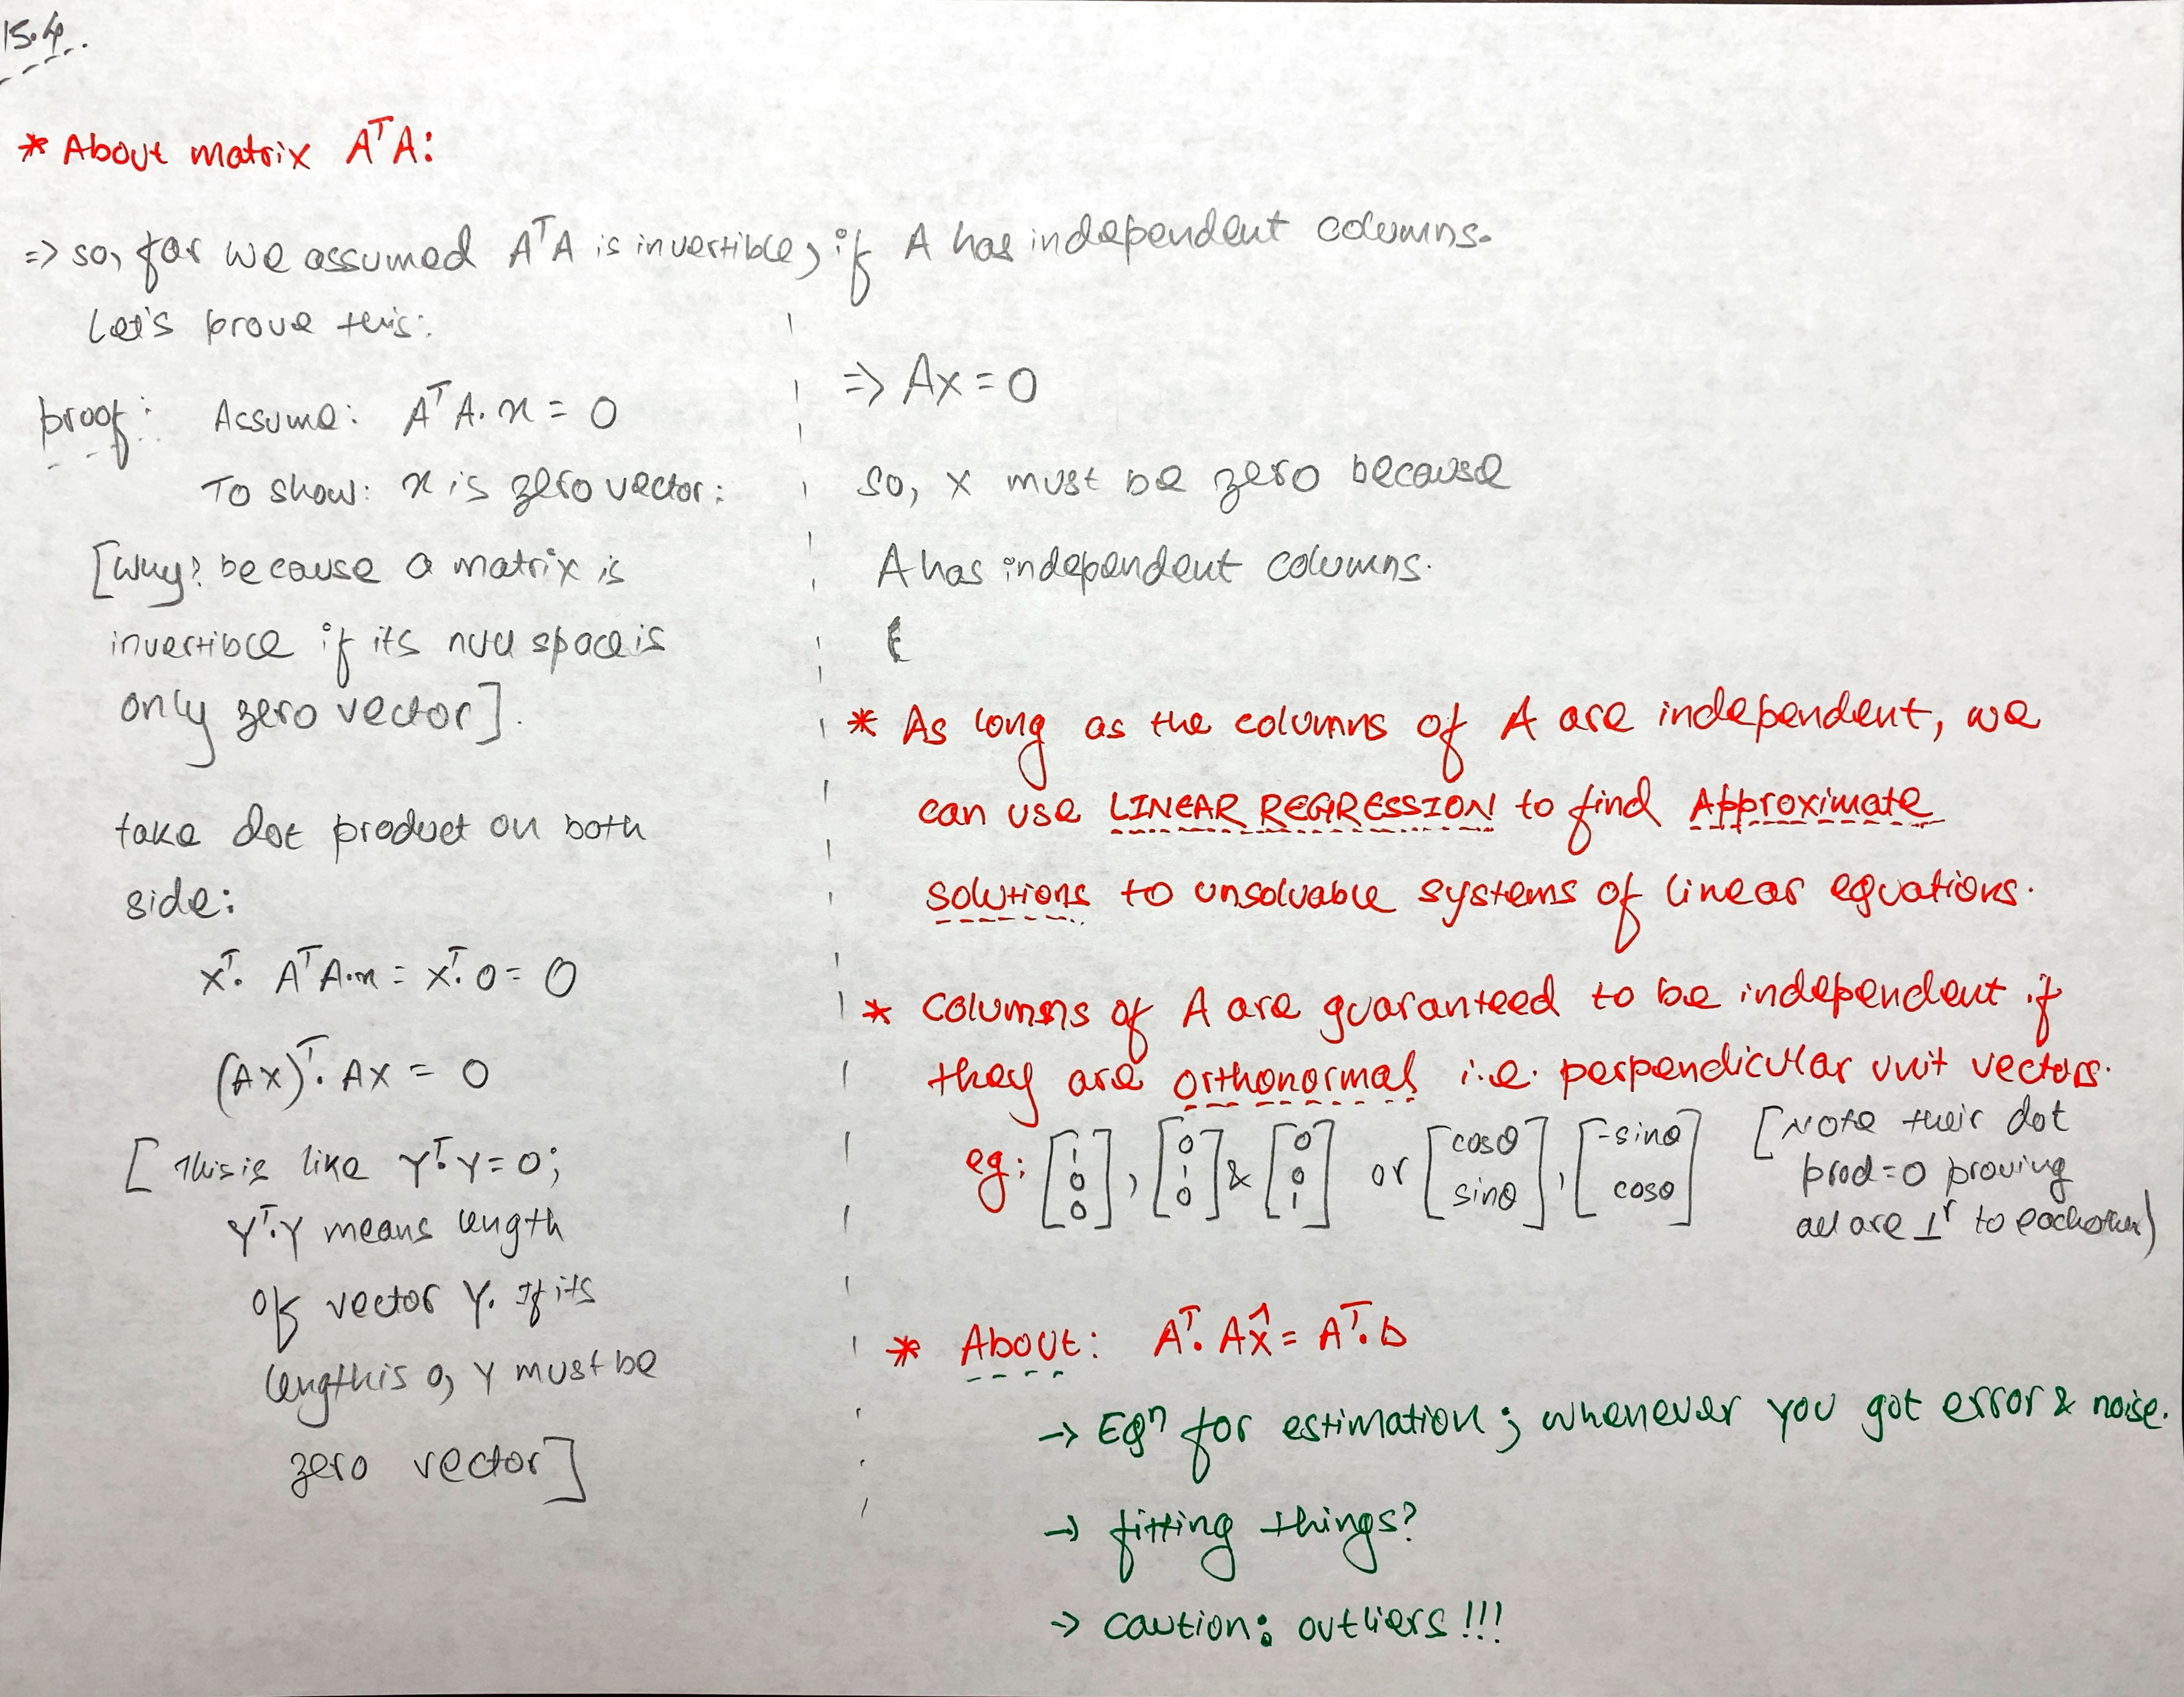 15.4.
* About matrix AᵀA:
=> so, far we assumed AᵀA is invertible, if A has independent columns.
Let's prove this:
proof: Assume: AᵀA.x = 0
To show: x is zero vector:
[Why? because a matrix is
invertible if its null space is
only zero vector].
take dot product on both
side:
xᵀ. AᵀA.x = xᵀ.0 = 0
(Ax)ᵀ. Ax = 0
[This is like Yᵀ.Y = 0;
Yᵀ.Y means length
of vector Y. If its
length is 0, Y must be
zero vector]
=> Ax = 0
so, x must be zero because
A has independent columns.
* As long as the columns of A are independent, we
can use LINEAR REGRESSION to find Approximate
solutions to unsolvable systems of linear equations.
* Columns of A are guaranteed to be independent if
they are orthonormal i.e. perpendicular unit vectors.
eg: [1 0 0], [0 1 0] & [0 0 1] or [cosθ sinθ], [-sinθ cosθ]
[Note their dot
prod=0 proving
all are ⊥ʳ to eachother)
* About: Aᵀ. Ax̂ = Aᵀ.b
→ EQⁿ for estimation; whenever you got error & noise.
→ fitting things?
→ caution: outliers!!!